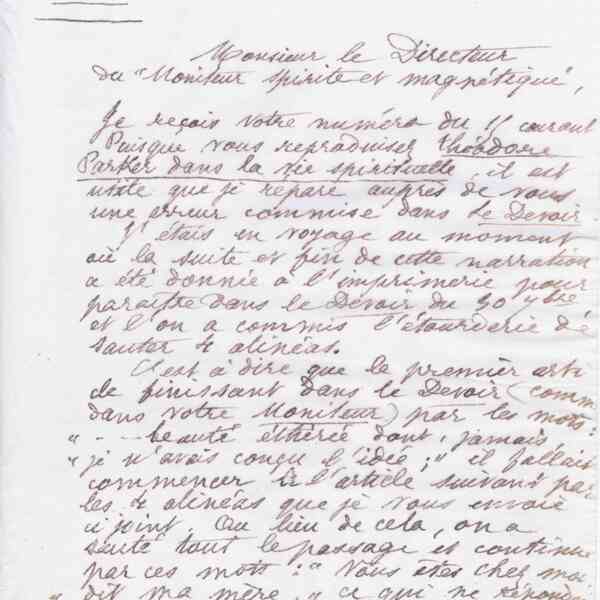 Monsieur le Directeur
du "Moniteur spirite et magnétique",
Je reçois votre numéro du 15 courant
Puisque vous reproduisez Théodore
Parker dans la vie spirituelle, il est
utile que je répare auprès de vous
une erreur commise dans le Devoir
J'étais en voyage au moment
où la suite et fin de cette narration
a été donnée à l'imprimerie pour
paraître dans le Devoir du 30 9bre
et l'on a commis l'étourderie de
sauter 4 alinéas.
C'est à dire que le premier arti-
cle finissant dans le Devoir (comme
dans votre Moniteur) par les mots:
" - - - beauté éthérée dont, jamais
" je n'avais conçu l'idée;" il fallait
commencer l'article suivant par
les 4 alinéas que je vous envoie
ci joint. Au lieu de cela, on a
sauté tout le passage et continué
par ces mots: "Vous êtes chez moi
" dit ma mère, " ce qui ne répond